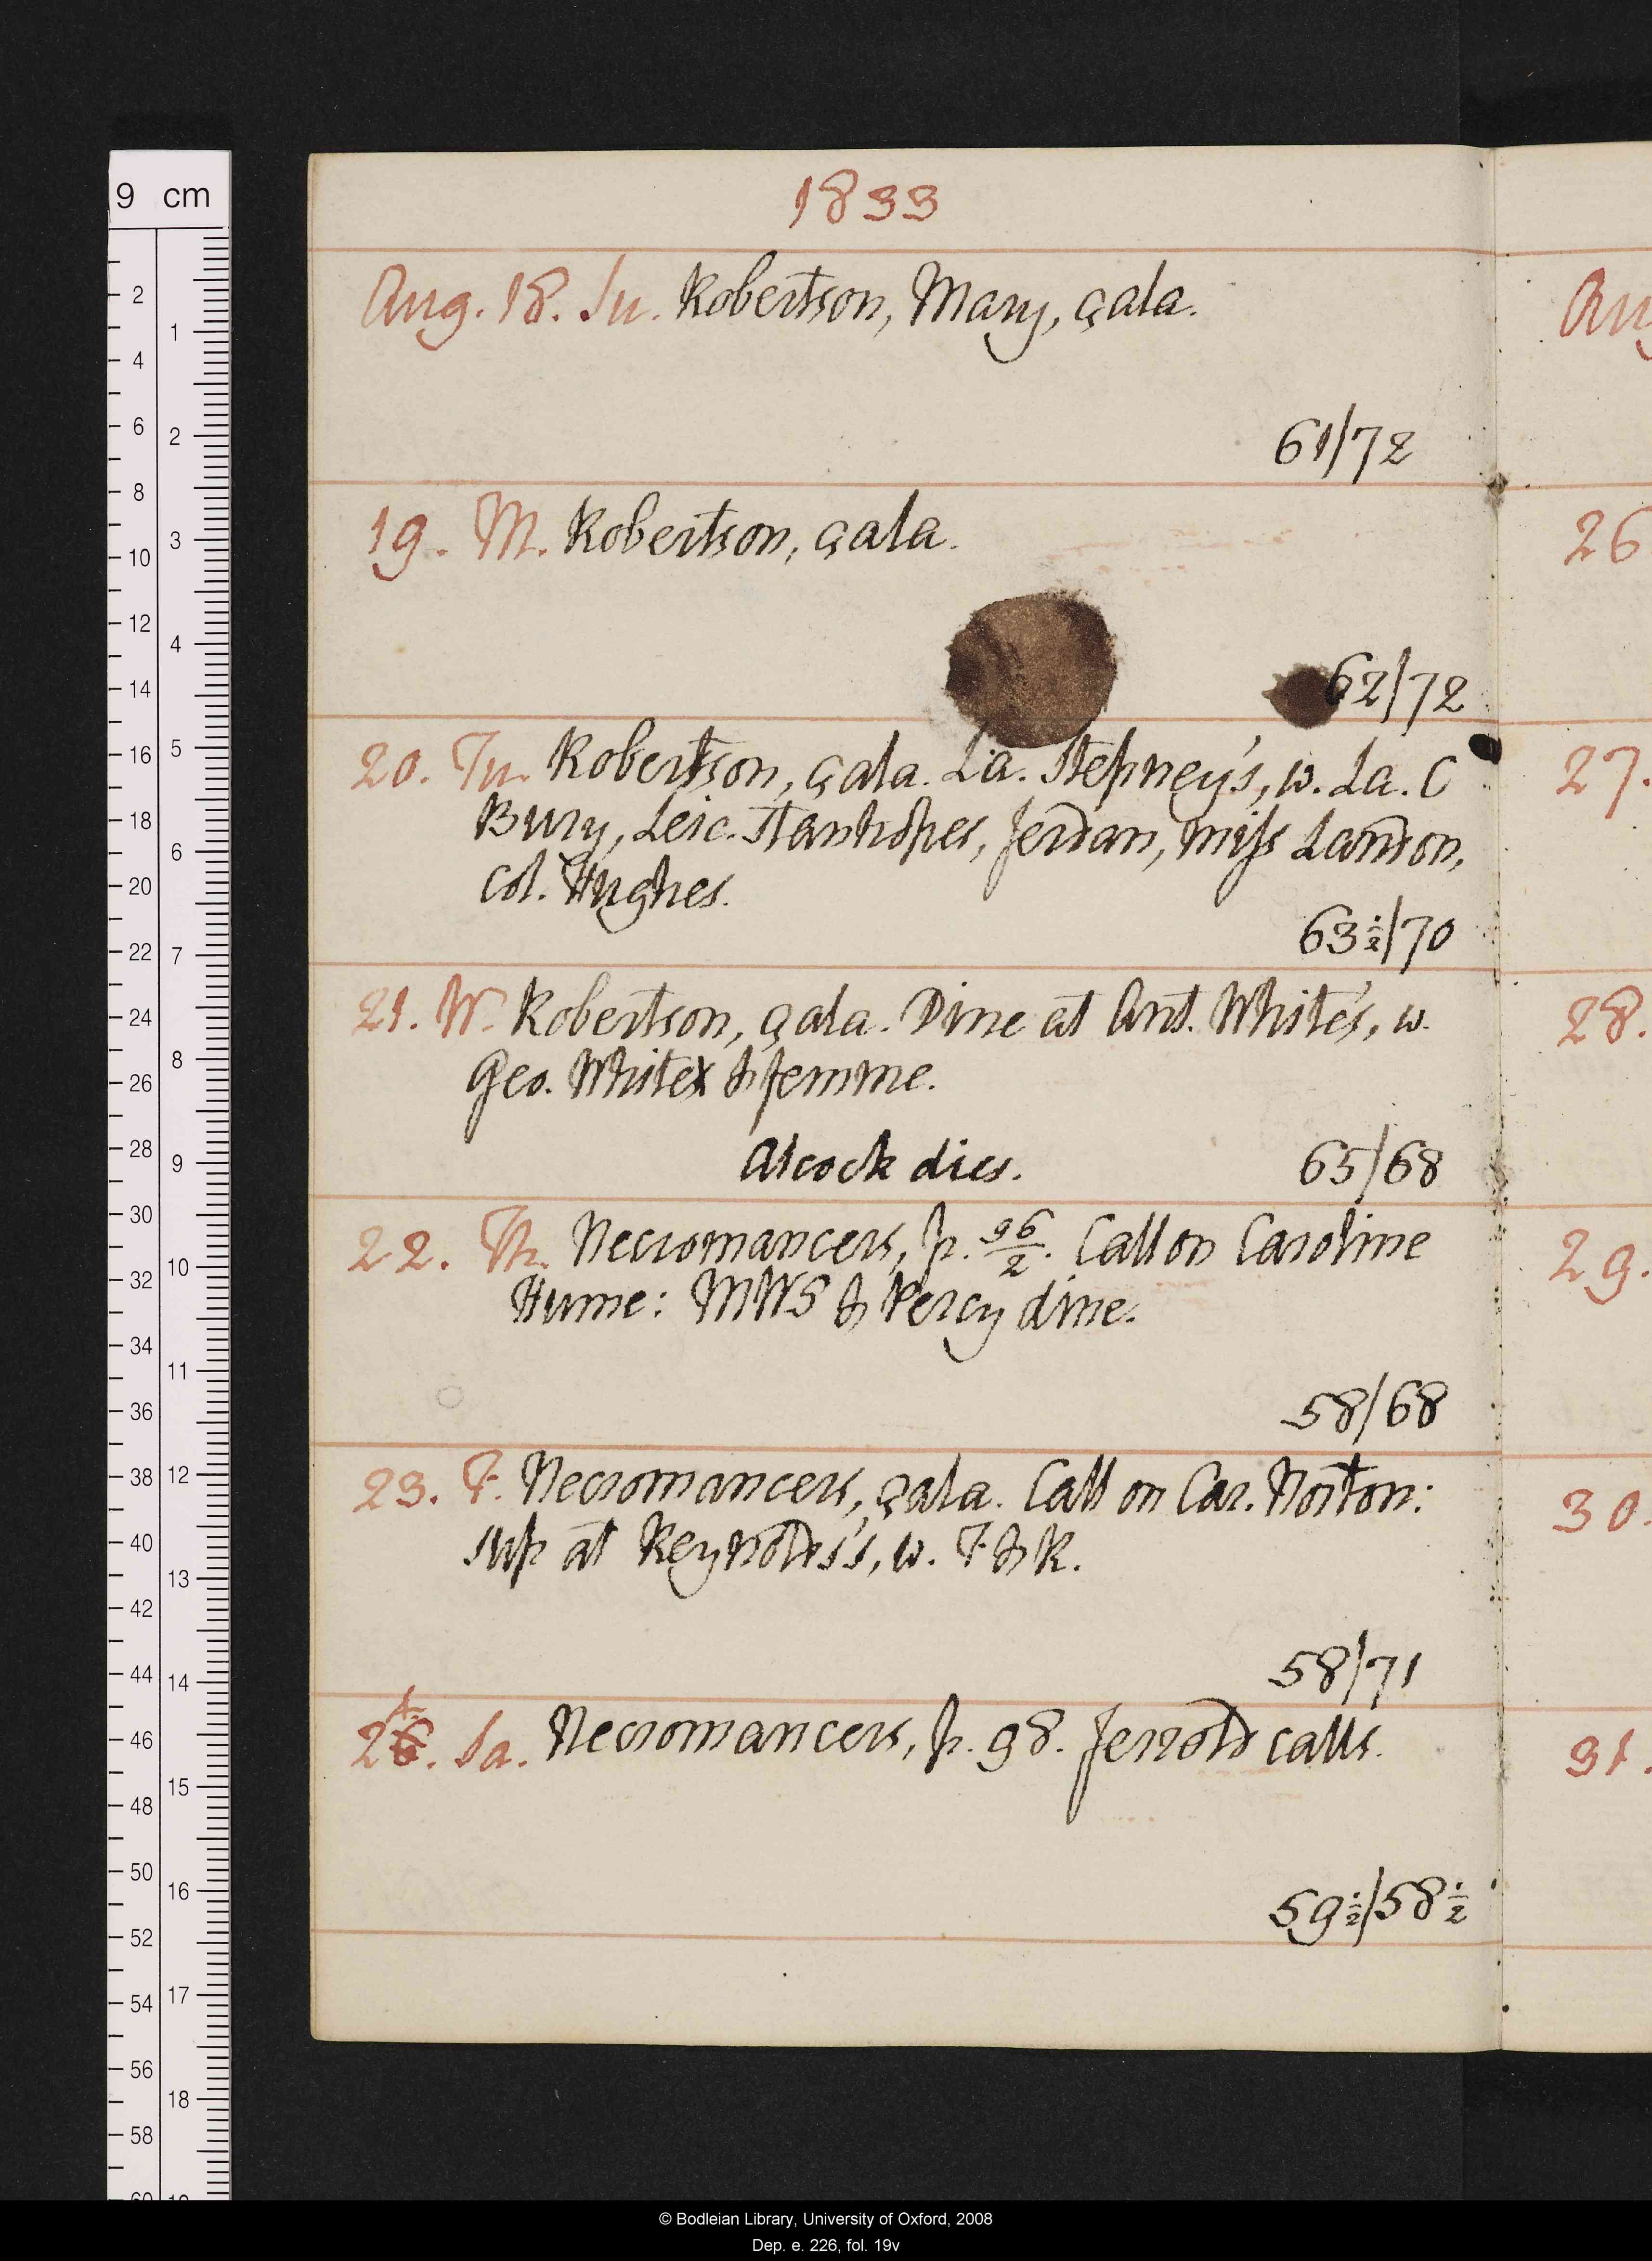 1833
Aug. 18. Su. Robertson, Mary, çala.
61/72
19. M. Robertson, çala.
62/72
20. Tu. Robertson, çala. La. Stepney's, w. La. C
Bury, Leic. Stanhopes, Jerdan, miss Landon,
col. Hughes.
63½/70
21. W. Robertson, çala. Dine at Ant. White's, w.
Geo. White & femme.
Alcock dies.
65/68
22. Th. Necromancers, p. 96/2. Call on Caroline
Hume: MWS & Percy dine.
58/68
23. F. Necromancers, çala. Call on Car. Norton:
sup at Reynolds's, w. F & R.
58/71
24. Sa. Necromancers, p. 98. Jerrold calls.
59½/58½
Aug
26
27.
28.
29.
30.
31.
9 cm
2
4
6
8
10
12
14
16
18
20
22
24
26
28
30
32
34
36
38
40
42
44
46
48
50
52
54
56
58
60
1
2
3
4
5
6
7
8
9
10
11
12
13
14
15
16
17
18
19
© Bodleian Library, University of Oxford, 2008
Dep. e. 226, fol. 19v